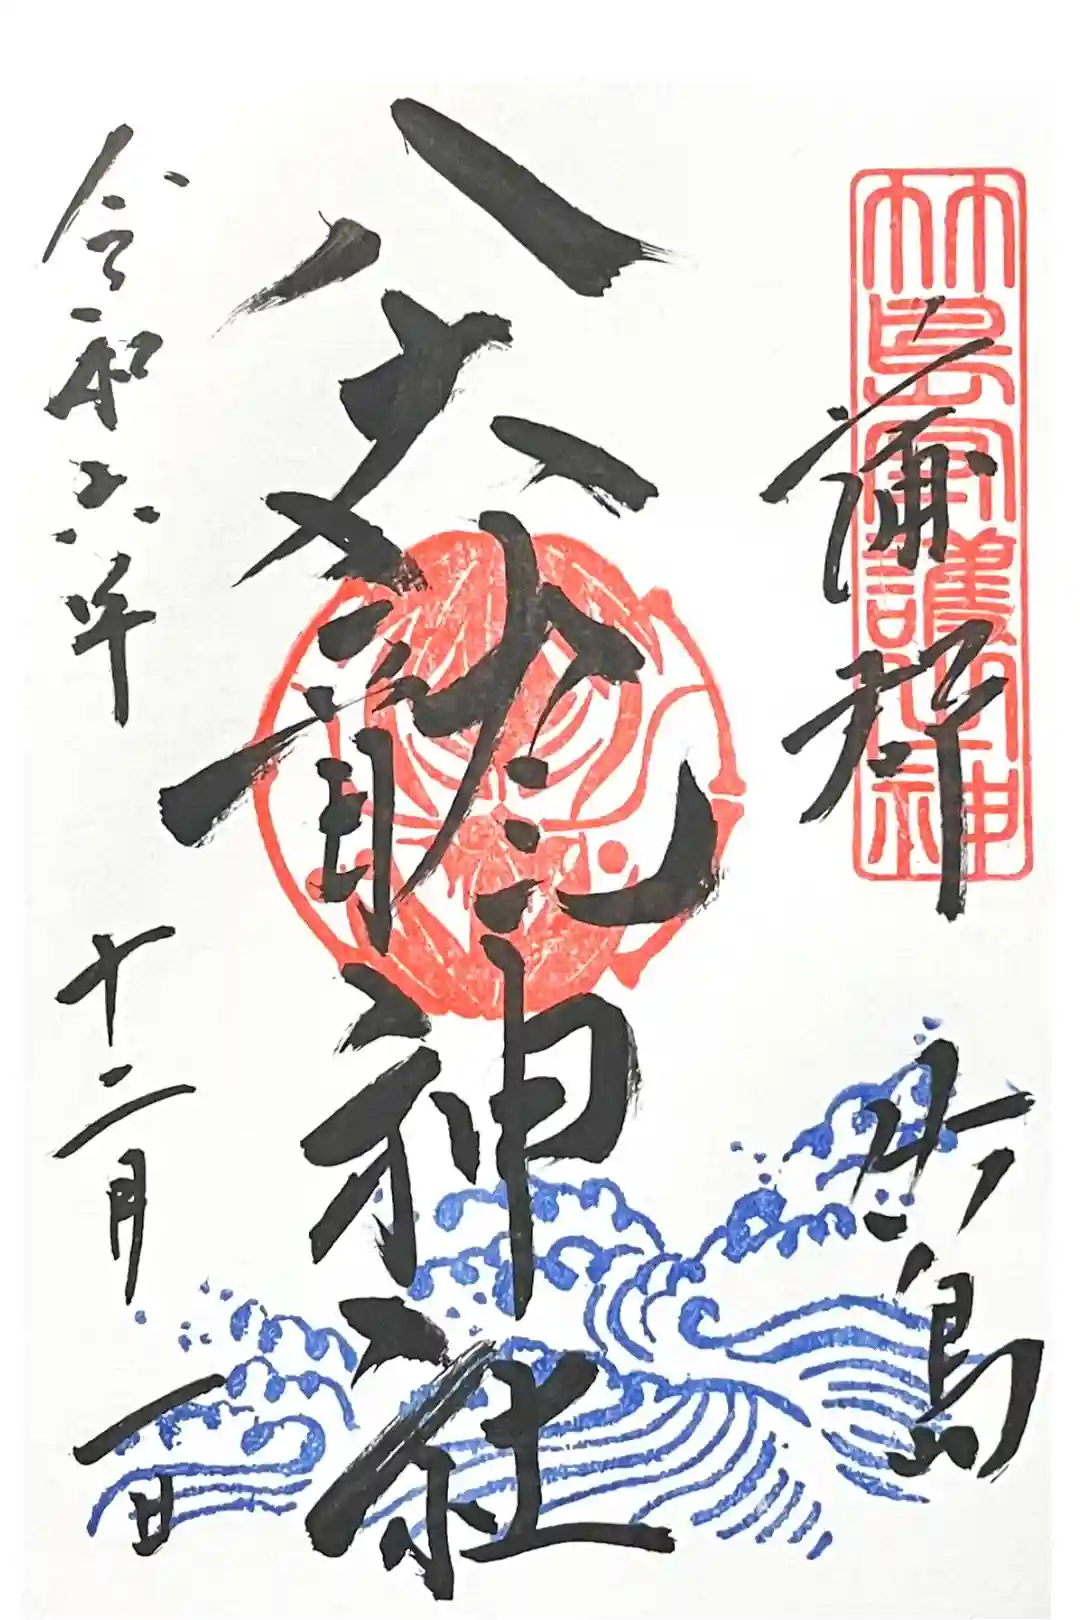 竹島守護神
蒲郡 竹島
八大龍神社
令和六年 十二月 一日